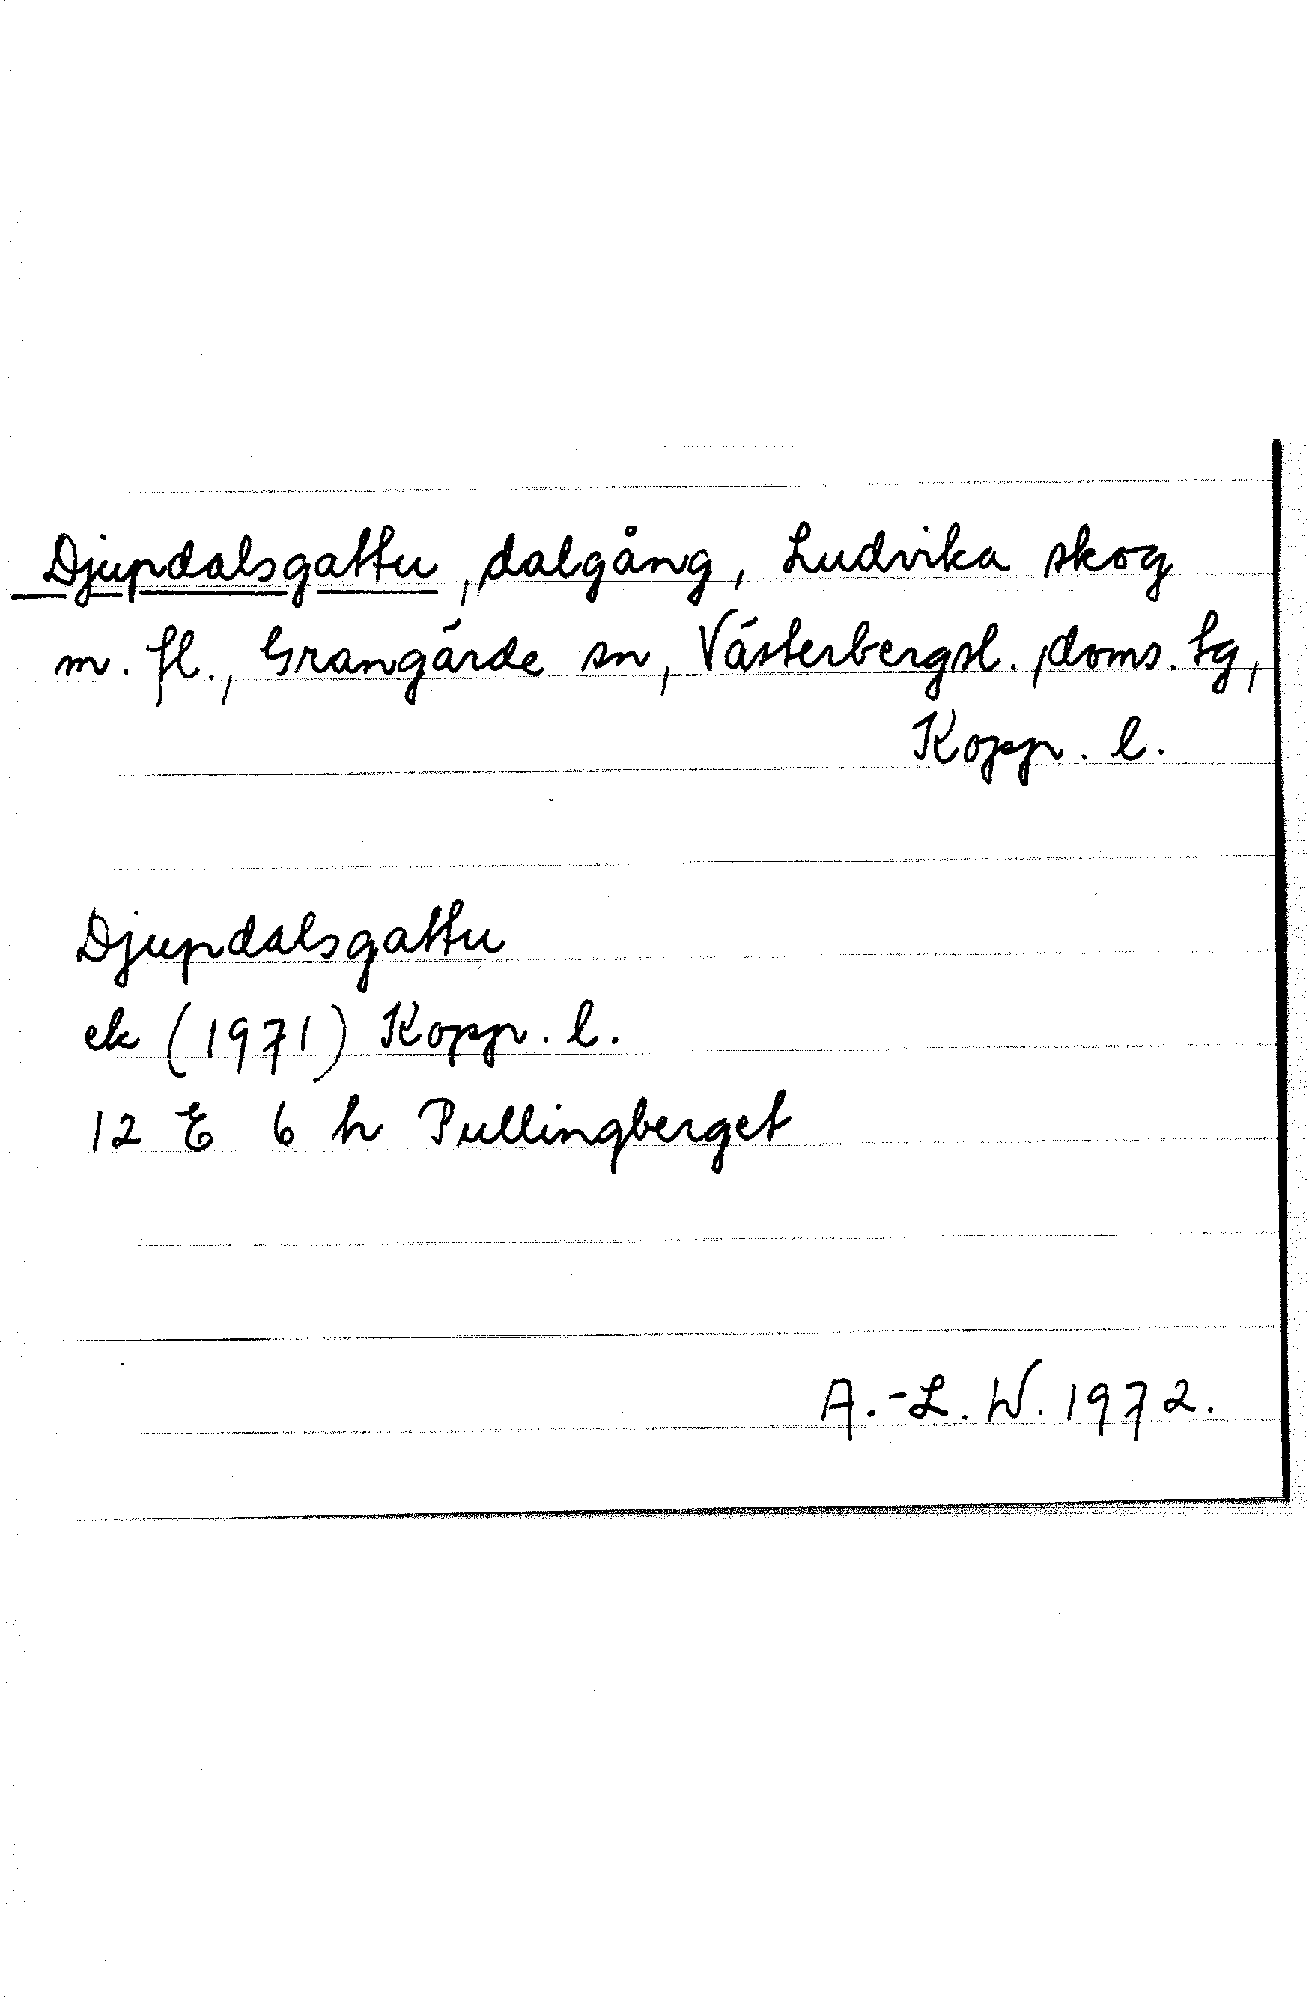 Djupdalsgattu, dalgång, Ludvika skog
m. fl., Grangärde sn, Västerbergsl., doms. tg,
Kopp. l.
Djupdalsgattu
ek (1971) Kopp. l.
12 E 6 h Pullingberget
A.-L. W. 1972.